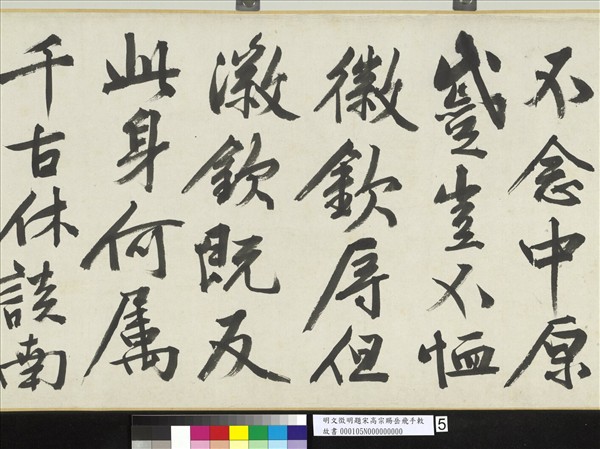 不念中原
蹙豈不恤
徽欽辱但
徽欽既反
此身何属
千古休談南
明文徵明題宋高宗賜岳飛手敕
故書 000105N000000000
5